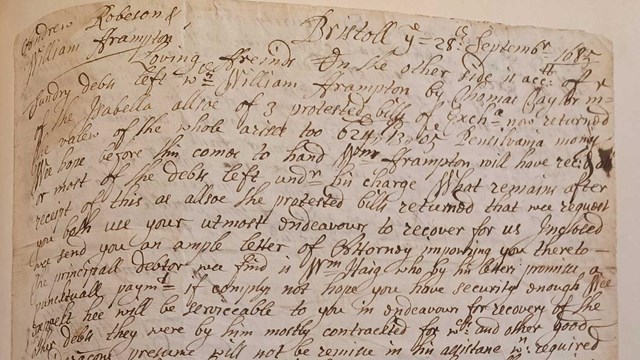 Andrew Robeson &
William Frampton
Bristoll ye 28th Septembr 1685
Loving Freinds On the other side is acctt of ye
Sundry debts left wth William Frampton by Thomas Taylor mr
of the Isabella allsoe of 3 protested bills of Excha now returned
the valew of the whole arises too 624:13:05 Pensilvania money
Wee hope before this comes to hand Wm Frampton will have
or most of the debts left undr his charge What remains after
receipt of this as allsoe the protested bills returned that wee request
you both use your utmost endeavours to recover for us Inglosed
wee send you an ample letter of Attorney impowring you thereto
The principall debtor wee find is Wm Haig who by his letters promises a
punctuall paymt if comply not hope you have security enough Wee
expect hee will be serviceable to you in endeavours for recovery of the
other debts they were by him mostly contracted for and other good
reasons presume will not be remise in his assistance required